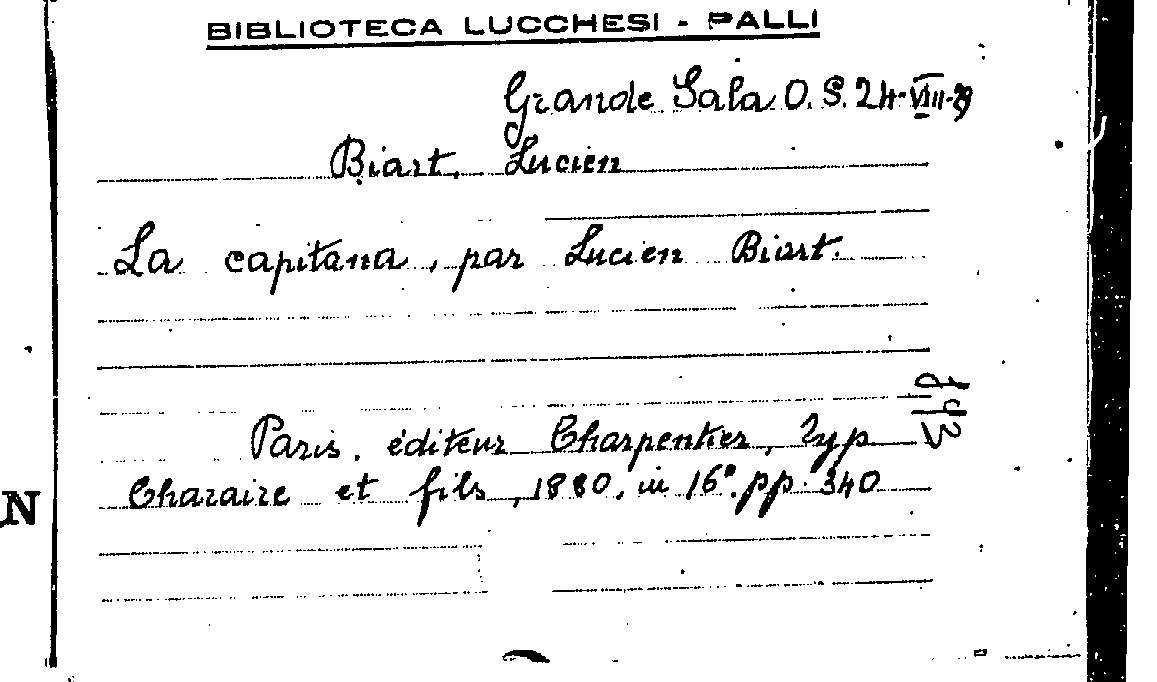 BIBLIOTECA LUCCHESI - PALLI
Grande Sala O. S. 24-VIII-29
Biart, Lucien
La capitana, par Lucien Biart.
Paris, éditeur Charpentier, Typ
Charaire et fils, 1880, in 16°. pp. 340
N